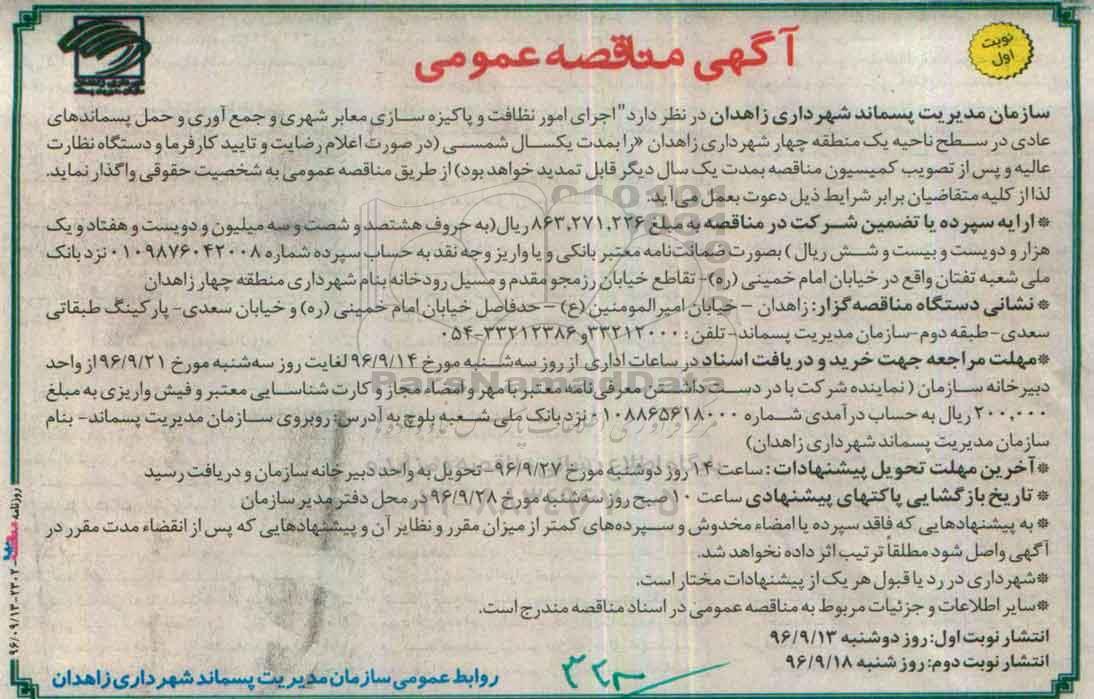 نوبت
اول
آگهی مناقصه عمومی
سازمان مدیریت پسماند شهرداری زاهدان در نظر دارد "اجرای امور نظافت و پاکیزه سازی معابر شهری و جمع آوری و حمل پسماندهای
عادی در سطح ناحیه یک منطقه چهار شهرداری زاهدان «را بمدت یکسال شمسی (در صورت اعلام رضایت و تایید کارفرما و دستگاه نظارت
عالیه و پس از تصویب کمیسیون مناقصه بمدت یک سال دیگر قابل تمدید خواهد بود) از طریق مناقصه عمومی به شخصیت حقوقی واگذار نماید.
لذا از کلیه متقاضیان برابر شرایط ذیل دعوت بعمل می آید:
*ارایه سپرده یا تضمین شرکت در مناقصه به مبلغ ۸۶۳,۲۷۱,۲۲۶ ریال (به حروف هشتصد و شصت و سه میلیون و دویست و هفتاد و یک
هزار و دویست و بیست و شش ریال) بصورت ضمانت‌نامه معتبر بانکی و یا واریز وجه نقد به حساب سپرده شماره ۰۱۰۹۸۷۶۰۴۲۰۰۸ نزد بانک
ملی شعبه تفتان واقع در خیابان امام خمینی (ره)- تقاطع خیابان رزمجو مقدم و مسیل رودخانه بنام شهرداری منطقه چهار زاهدان
* نشانی دستگاه مناقصه گزار: زاهدان – خیابان امیرالمومنین (ع) – حدفاصل خیابان امام خمینی (ره) و خیابان سعدی- پارکینگ طبقاتی
سعدی-طبقه دوم-سازمان مدیریت پسماند- تلفن: ۳۳۲۱۲۰۰۰و ۳۳۲۱۲۳۸۶-۰۵۴
*مهلت مراجعه جهت خرید و دریافت اسناد در ساعات اداری از روز سه‌شنبه مورخ ۹۶/۹/۱۴ لغایت روز سه‌شنبه مورخ ۹۶/۹/۲۱ از واحد
دبیرخانه سازمان (نماینده شرکت با در دست داشتن معرفی‌نامه معتبر با مهر و امضاء مجاز و کارت شناسایی معتبر و فیش واریزی به مبلغ
۲۰۰,۰۰۰ ریال به حساب درآمدی شماره ۰۱۰۸۸۶۵۶۱۸۰۰۰ نزد بانک ملی شعبه بلوچ به آدرس: روبروی سازمان مدیریت پسماند- بنام
سازمان مدیریت پسماند شهرداری زاهدان)
*آخرین مهلت تحویل پیشنهادات: ساعت ۱۴ روز دوشنبه مورخ ۹۶/۹/۲۷- تحویل به واحد دبیرخانه سازمان و دریافت رسید
* تاریخ بازگشایی پاکتهای پیشنهادی ساعت ۱۰ صبح روز سه‌شنبه مورخ ۹۶/۹/۲۸ در محل دفتر مدیر سازمان
* به پیشنهادهایی که فاقد سپرده یا امضاء مخدوش و سپرده‌های کمتر از میزان مقرر و نظایر آن و پیشنهادهایی که پس از انقضاء مدت مقرر در
آگهی واصل شود مطلقاً ترتیب اثر داده نخواهد شد.
*شهرداری در رد یا قبول هر یک از پیشنهادات مختار است.
*سایر اطلاعات و جزئیات مربوط به مناقصه عمومی در اسناد مناقصه مندرج است.
انتشار نوبت اول: روز دوشنبه ۹۶/۹/۱۳
انتشار نوبت دوم: روز شنبه ۹۶/۹/۱۸
روابط عمومی سازمان مدیریت پسماند شهرداری زاهدان
روزنامه مناقصه -۲۳۰۲-۹۶/۰۹/۱۳
ParsNamadData